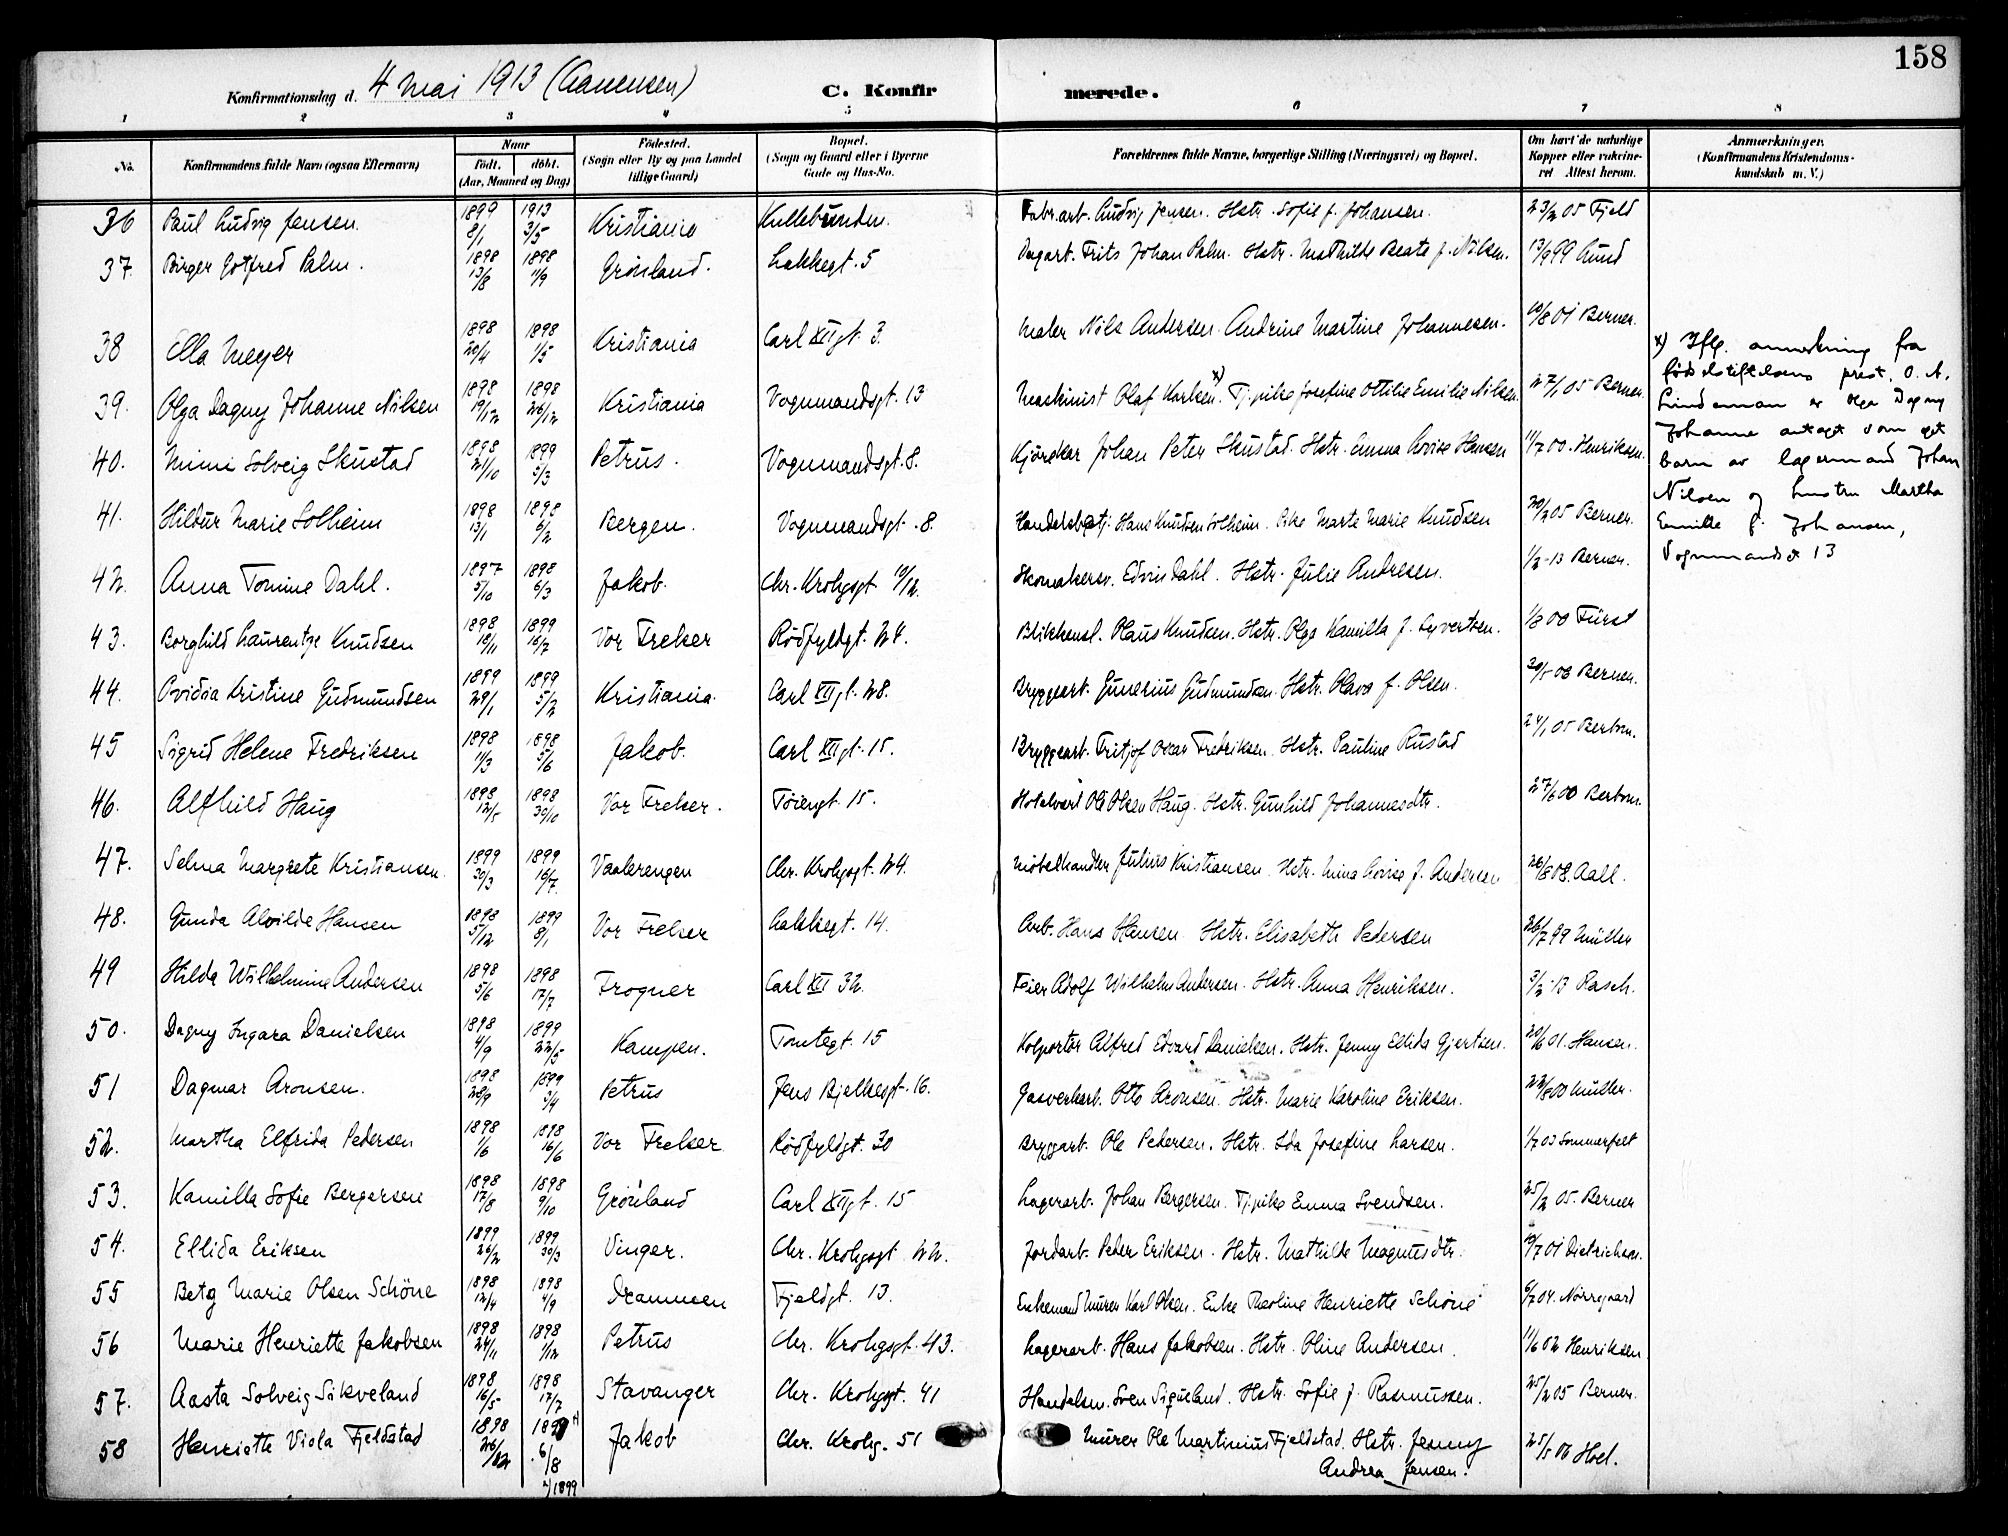 158
Konfirmationsdag d. 4 mai 1913
C. Konfirmerede.
1 2 3 4 5 6 7 8
No. Konfirmandens fulde Navn (ogsaa Efternavn) Naar födt. döbt. (Aar, Maaned og Dag) Födested. (Sogn eller By og paa Landet tillige Gaard) Bopæl. (Sogn og Gaard eller i Byerne Gade og Hus-No. Forældrenes fulde Navne, borgerlige Stilling (Næringsvei) og Bopæl. Om havt de naturlige Kopper eller vakcineret Attest herom. Anmærkninger. (Konfirmandens Kristendomskundskab m. V.)
36 Paul Ludvig Jensen. 1899 8/1 1913 3/5 Kristiania Fabr.arb. Ludvig Jensen. Hstr. Sofie f. Johansen. 23/2 05 Fjeld
37 Birger Gotfred Palm. 1898 13/8 1898 11/9 Grönland. Lakkegt. 5 Dagarb. Frits Johan Palm. Hstr. Mathilde Beate f. Nilsen. 13/9 99 Lund
38 Ella Meyer 1898 20/4 1898 1/5 Kristiania Carl XII gt. 3. Maler Nils Andersen. Andrine Martine Johannesen. 10/8 01 Berner.
39. Olga Dagny Johanne Nilsen 1898 19/12 1898 26/12 Kristiania Vognmandsgt. 13 Maskinist Olaf Karlsen x) Tj.pike Josefine Ottilie Emilie Nilsen. 27/1 05 Berner.
40. Mimi Solveig Skustad 1898 21/10 1899 5/3 Petrus. Vognmandsgt. 8. Kjörekar Johan Peter Skustad. Hstr. Emma Lovise Hansen 11/7 00. Henriksen.
41. Hildur Marie Solheim 1898 13/1 1898 6/2 Bergen. Vognmandsgt. 8. Hans Knudsen Solheim. Pike Marte Marie Knudsen 20/2 05 Berner.
42. Anna Tomine Dahl. 1897 5/10 1898 6/3 Jakob. Chr. Krohgsgt 10/12. Skomakersv. Edvin Dahl. Hstr. Julie Andresen. 1/2-13 Berner.
43. Borghild Laurentze Knudsen 1898 18/11 1899 16/7 Vor Frelser Rödfyldgt. 24. Blikkensl. Olaus Knudsen. Hstr. Olga Kamilla f. Syvertsen. 1/8 00 Fürst
44. Ovidia Kristine Gudmundsen 1899 29/1 1899 5/2 Kristiania. Carl XII gt. 28. Bryggearb. Gunerius Gudmundsen. Hstr. Olava f. Olsen. 20/5 08 Berner.
45 Sigrid Helene Fredriksen 1898 11/3 1898 5/6 Jakob. Carl XII gt. 15. Bryggearb. Fritjof Oscar Fredriksen. Hstr. Pauline Rustad 24/1 05 Berbom.
46. Alfhild Haug 1898 12/5 1898 30/10 Vor Frelser. Töiengt. 15. Hotelvært Ole Olsen Haug. Hstr. Gunhild Johannesdtr. 27/6 00 Berbom.
47. Selma Margrete Kristiansen. 1899 30/3 1899 16/7 Vaalerengen Chr. Krohgsgt. 24. Möbelhandler Julius Kristiansen. Hstr. Mina Lovise f. Andersen 26/8 08. Aall.
48. Gunda Alvilde Hansen 1898 5/12 1899 8/1 Vor Frelser Lakkegt. 14. Arb. Hans Hansen. Hstr. Elisabeth Pedersen 26/7 99 Müller
49 Hilda Wilhelmine Andersen 1898 5/6 1898 17/7 Frogner Carl XII 32. Feier Adolf Wilhelm Andersen. Hstr. Anna Henriksen. 3/2-13 Rasch.
50. Dagny Ingara Danielsen 1898 4/9 1899 22/5 Kampen. Tomtegt. 15 Kolportör Alfred Edvard Danielsen. Hstr. Jenny Ellida Gjertsen. 20/6 01. Hansen.
51 Dagmar Aronsen. 1898 28/9 1899 3/4 Petrus Jens Bjelkesgt. 16. Gasverkarb. Otto Aronsen. Hstr. Marie Karoline Eriksen. 22/8 00 Müller.
52. Martha Elfrida Pedersen 1898 1/6 1898 16/6 Vor Frelser Rödfyldgt. 30 Bryggarb. Ole Pedersen. Hstr. Ida Josefine Larsen. 1/7 03 Sommerfelt
53. Kamilla Sofie Bergersen 1898 17/8 1898 9/10 Grönland Carl XII gt. 15 Lagerarb. Johan Bergersen. Tj.pike Emma Svendsen. 25/2 05. Berner
54. Ellida Eriksen 1899 26/2 1899 30/3 Vinger. Chr. Krohgsgt 22. Jordarb. Peder Eriksen. Hstr. Mathilde Magnusdtr. /7 01 Dietrichson.
55 Betzy Marie Olsen Schöne 1898 12/4 1898 4/9 Drammen Fjeldgt. 13. Enkemand Murer Karl Olsen. Enke Theoline Henriette Schöne 6/7 04. Nörregaard
56 Marie Henriette Jakobsen 1898 24/11 1898 1/12 Petrus Chr. Krohgsgt. 43. Lagerarb. Hans Jakobsen. Hstr. Oline Andersen. 11/6 02 Henriksen.
57. Aasta Solveig Sikveland 1898 16/5 1898 17/7 Stavanger Chr. Krohgsgt. 41 Handelsm. Sven Siqveland. Hstr. Sofie f. Rasmussen. 25/2 05 Berner.
58 Henriette Viola Fjeldstad 1898 26/12 6/8 Jakob Chr. Krohg. 51 Murer Ole Martinius Fjeldstad. Hstr. Jenny
Andrea Jensen. 25/5 06 Hoel.
1899
x) Iflg. anmerkning fra
födselsstiftelsens prest, O. A.
Lindeman er Olga Dagny
Johanne antagt som eget
barn av lagermand Johan
Nilsen og hustru Martha
Emilie f. Johansen,
Vognmandsgt 13